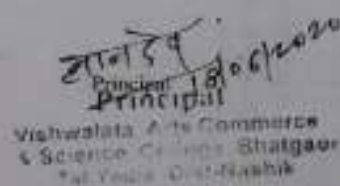 ज्ञानदेव
18/06/2020
Principal
Principal
Vishwalata Arts Commerce
& Science College Bhatgaon
Tal Yeola Dist-Nashik